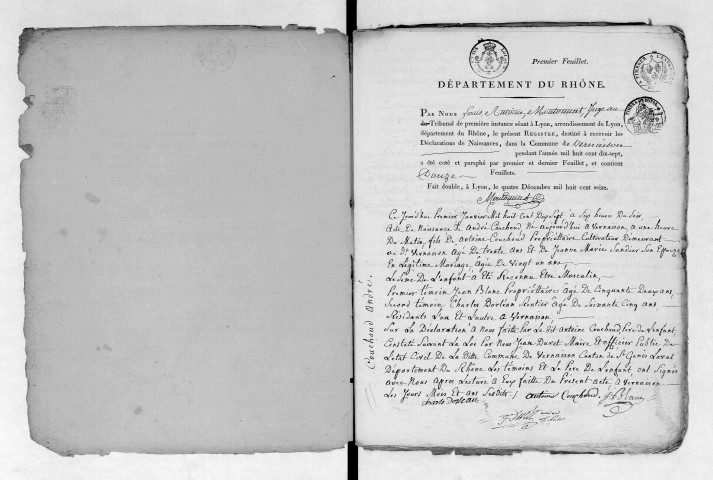 Premier Feuillet.
DÉPARTEMENT DU RHÔNE.
PAR NOUS Louis Antoine Montouinat, Juge au
Tribunal de première instance séant à Lyon, arrondissement de Lyon,
département du Rhône, le présent REGISTRE, destiné à recevoir les
Déclarations de Naissances, dans la Commune de Vernaison
pendant l'année mil huit cent dix-sept,
a été coté et paraphé par premier et dernier Feuillet, et contient
Douze Feuillets.
Fait double, à Lyon, le quatre Décembre mil huit cent seize.
Ce Jourd'hui Premier Janvier Mil huit Cent Dix Sept à Six heures Du Soir
Acte De Naissance de André Couchoud, Né aujourd'hui a Vernaison, a une heure
Du Matin, fils De Antoine Couchoud Propriétaire Cultivateur Demeurant
au dt Vernaison Agé De trente Ans Et De Jeanne Marie Sandier Son Epouse
En Légitime Mariage, Agée De Vingt un ans
Le Sexe De L'enfant A Eté Reconnu Etre Masculin,
Premier témoin Jean Blanc Propriétaire Agé De Cinquante Deux ans,
Second témoin Charles Dorlean Rentier Agé De Soixante Cinq ans
Résidants L'un Et L'autre a Vernaison
Sur La Déclaration a Nous faitte Par Le dit Antoine Couchoud, Père de L'enfant
Constaté Suivant La Loi Par Nous Jean Duret Maire Et officier Public De
L'etat Civil De La Ditte Commune De Vernaison Canton de St Genis Laval
Département Du Rhône Les témoins Et Le Père De L'enfant, ont Signés
avec Nous Apres Lecture a Eux faitte Du Present acte, a Vernaison
Les Jours Mois Et ans Susdits
antoine Couchoud. J. Blanc
Couchoud André.